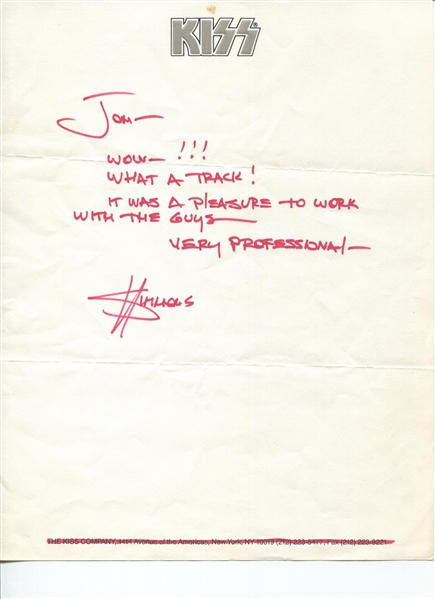 KISS
Jom—
WOW— !!!
WHAT A TRACK!
IT WAS A PLEASURE TO WORK
WITH THE GUYS—
VERY PROFESSIONAL—
SIMMONS
THE KISS COMPANY, Avenue of the Americas, New York, NY 10019 (212) Fax (212)